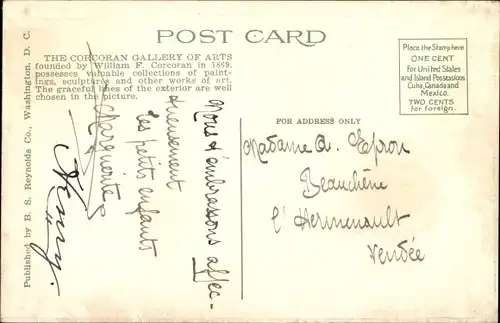 POST CARD
THE CORCORAN GALLERY OF ARTS
founded by William F. Corcoran in 1869.
possesses valuable collections of paint-
ings, sculptures and other works of art.
The graceful lines of the exterior are well
chosen in the picture.
Place the Stamp here
ONE CENT
for United States
and Island Possessions
Cuba, Canada and
Mexico.
TWO CENTS
for Foreign.
FOR ADDRESS ONLY
Madame A. Epron
Beauchêne
l'Hermenault
Vendée
Nous t'embrassons affec-
tueusement
Les petits enfants
Marguerite
Henry.
Published by B. S. Reynolds Co., Washington, D. C.